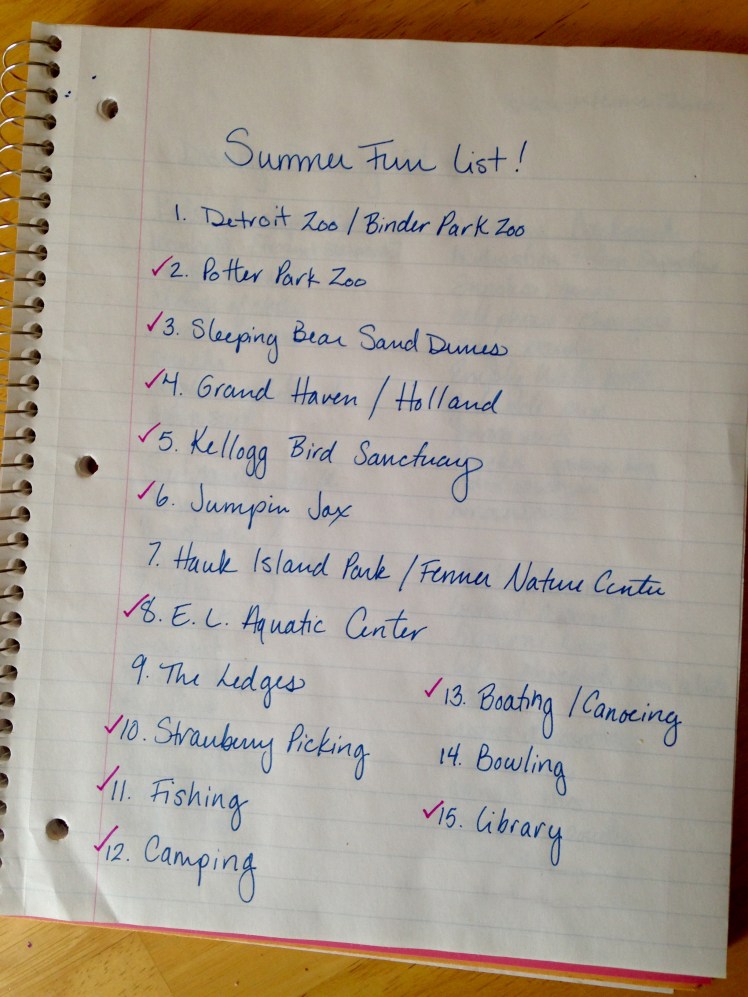 Summer Fun List!
1. Detroit Zoo / Binder Park Zoo
✓2. Potter Park Zoo
✓3. Sleeping Bear Sand Dunes
✓4. Grand Haven / Holland
✓5. Kellogg Bird Sanctuary
✓6. Jumpin Jax
7. Hawk Island Park / Fenner Nature Center
✓8. E. L. Aquatic Center
9. The Ledges
✓10. Strawberry Picking
✓11. Fishing
✓12. Camping
✓13. Boating / Canoeing
14. Bowling
✓15. Library